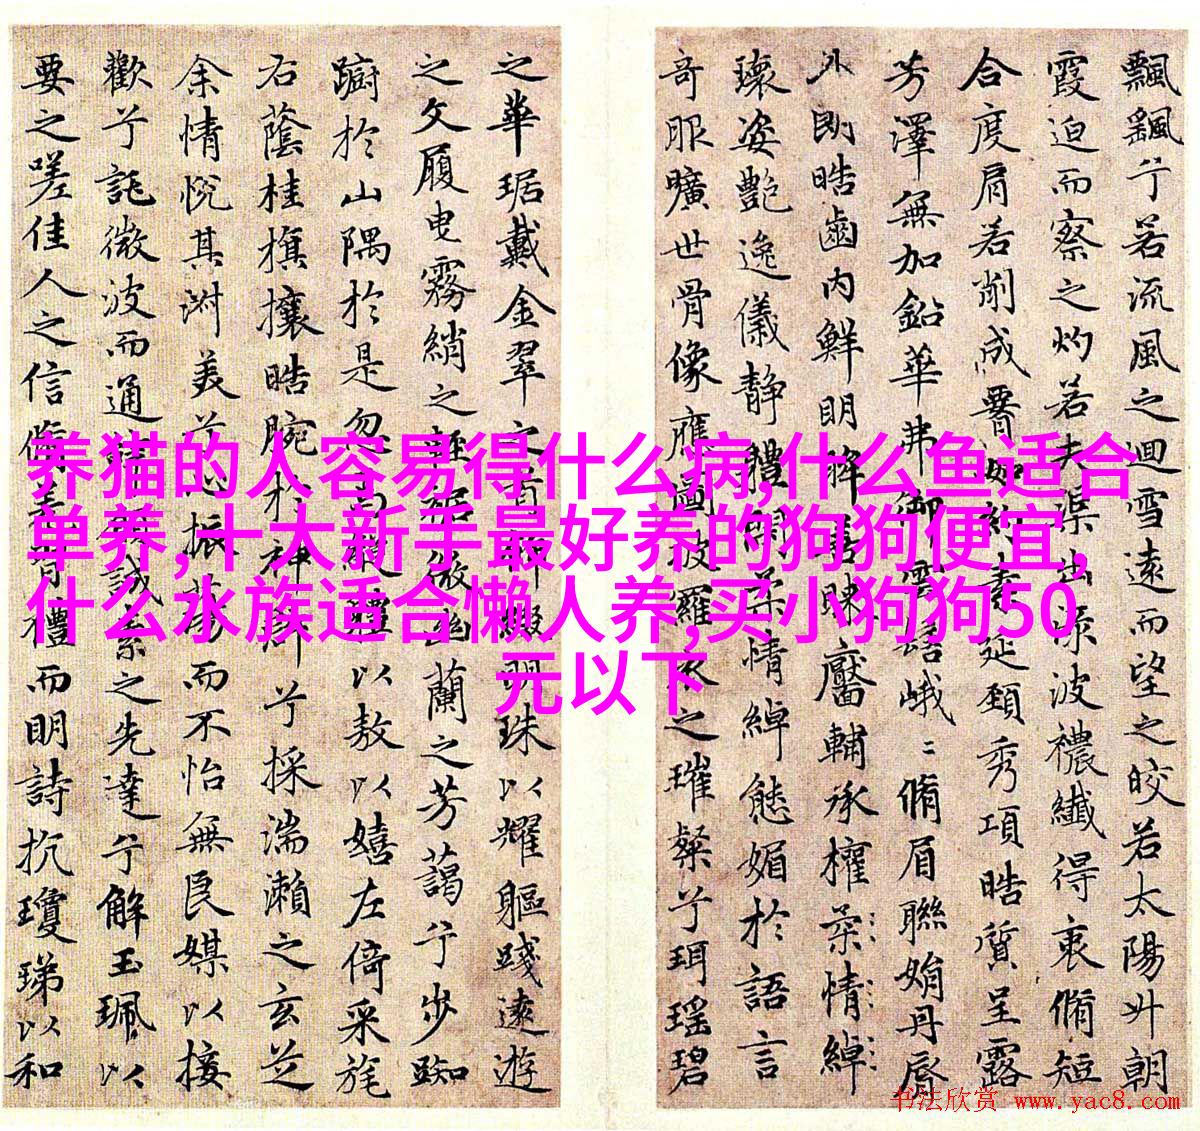 飄飖兮若流風之迴雪遠而望之皎若太陽升朝
霞迫而察之灼若夫渠出淥波禯纖得衷脩短
合度肩若削成如約素延頸秀項皓質呈露
芳澤無加鉛華弗御雲髻峨〻脩眉聯娟丹脣
外朗皓齒內鮮明眸善睞靨輔承權柔情綽
瓌姿艷逸儀靜體閑柔情綽態媚於語言
奇服曠世骨像應圖披羅衣之璀粲兮珥瑤碧
之華琚戴金翠之首飾綴明珠以耀軀踐遠遊
之文履曳霧綃之輕裾微幽蘭之芳藹兮步踟
躕於山隅於是忽焉縱體以敖以嬉左倚采旄
右蔭桂旗攘皓腕於神滸兮採湍瀨之玄芝
余情悅其淑美兮心振蕩而不怡無良媒以接
歡兮託微波而通辭願誠素之先達兮解玉珮以
要之嗟佳人之信脩羌習禮而明詩抗瓊珶以和
养猫的人容易得什么病,什么鱼适合
单养,十大新手最好养的狗狗便宜,
什么水族适合懒人养,买小狗狗50
元以下
书法欣赏 www.yac8.com